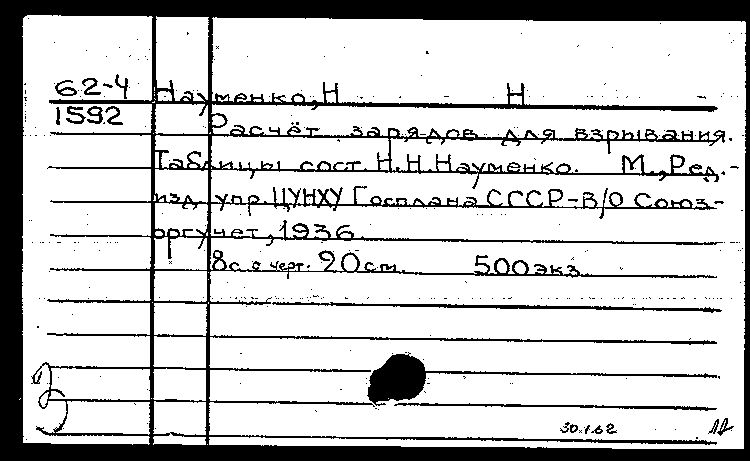 62-4 Науменко, Н Н
1592 Расчёт зарядов для взрывания.
Таблицы сост. Н.Н.Науменко. М., Ред.-
изд. упр. ЦУНХУ Госплана СССР-В/О Союз-
оргучет, 1936.
8с. с черт. 20см. 500экз.
30.1.62